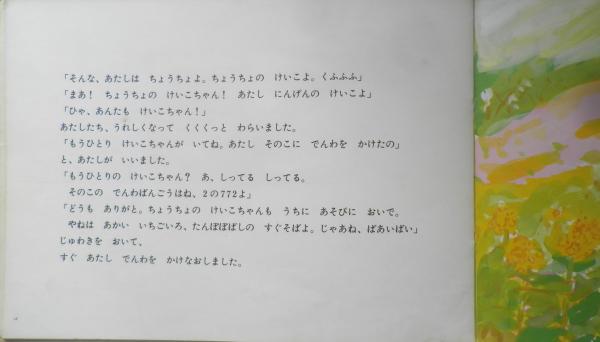 「そんな、あたしは ちょうちょよ。ちょうちょの けいこよ。くふふふ」
「まあ! ちょうちょの けいこちゃん! あたし にんげんの けいこよ」
「ひゃ、あんたも けいこちゃん!」
あたしたち、うれしくなって くくくっと わらいました。
「もうひとり けいこちゃんが いてね。あたし そのこに でんわを かけたの」
と、あたしが いいました。
「もうひとりの けいこちゃん? あ、しってる しってる。
そのこの でんわばんごうはね、2の772よ」
「どうも ありがと。ちょうちょの けいこちゃんも うちに あそびに おいで。
やねは あかい いちごいろ、たんぽぽばしの すぐそばよ。じゃあね、ばあいばい」
じゅわきを おいて、
すぐ あたし でんわを かけなおしました。